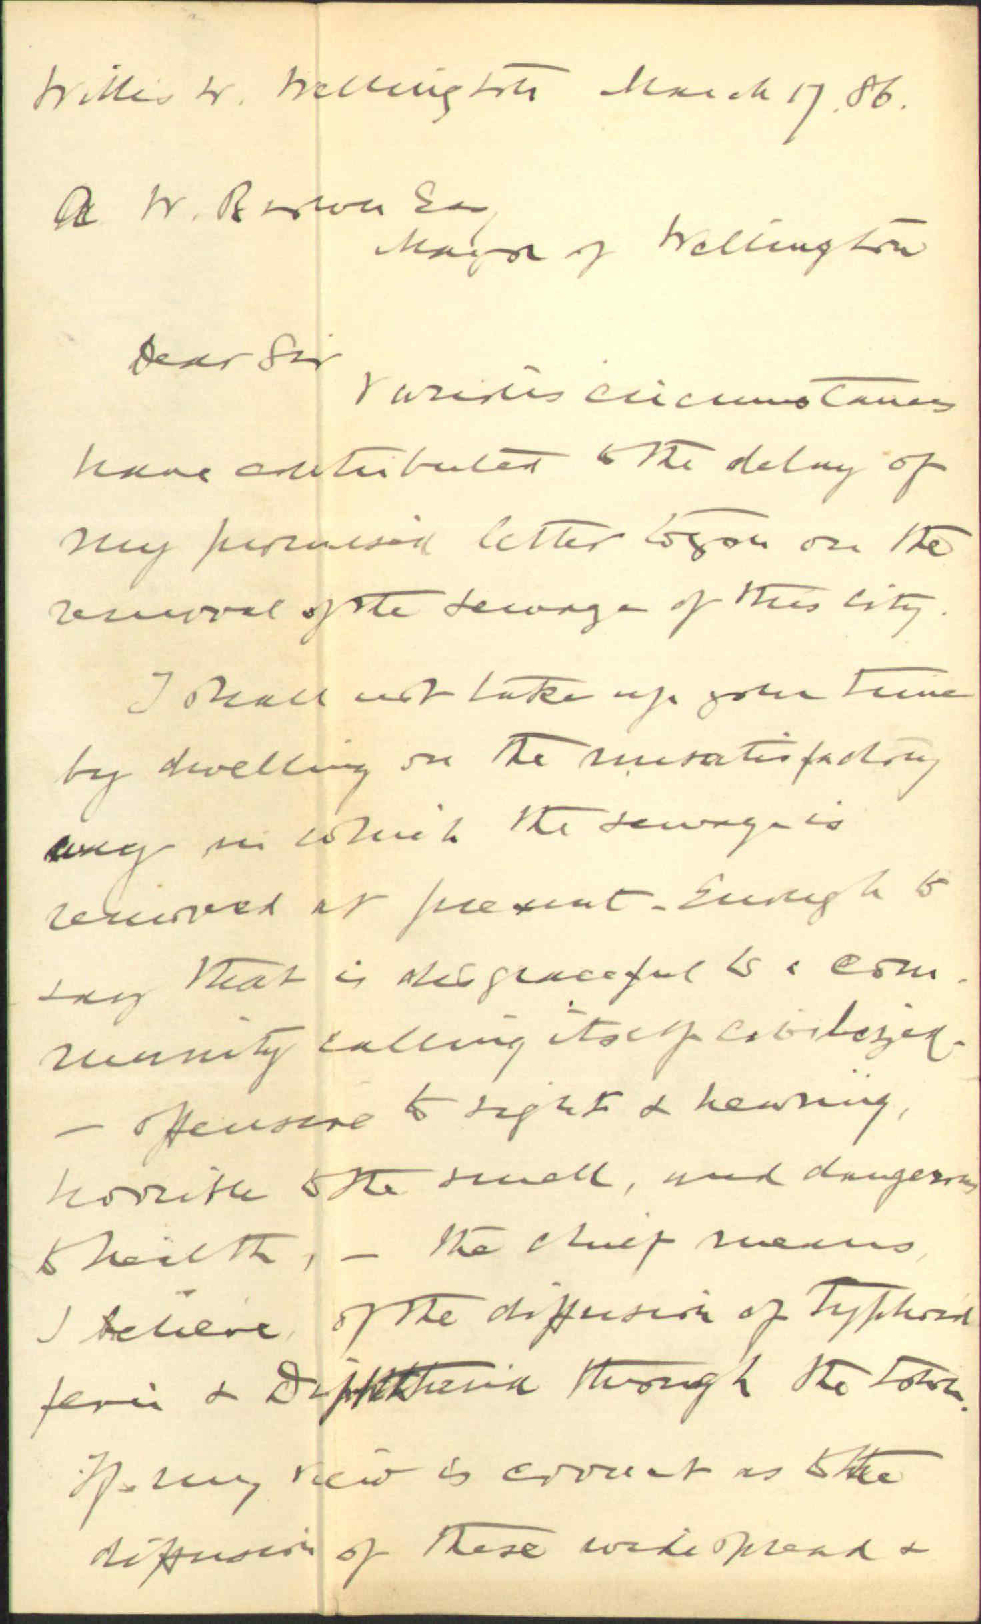 Willis St. Wellington March 17. 86.
A W. Brown Esq
Mayor of Wellington
Dear Sir
Various circumstances
have contributed to the delay of
my promised letter to you on the
removal of the sewage of this city.
I shall not take up your time
by dwelling on the unsatisfactory
way in which the sewage is
removed at present. Enough to
say that is disgraceful to a com-
munity calling itself civilized.
– offensive to sight & hearing,
horrible to the smell, and dangerous
to health, – the chief means,
I believe, of the diffusion of Typhoid
fever & Diphtheria through the town.
If my view is correct as to the
diffusion of these widespread &